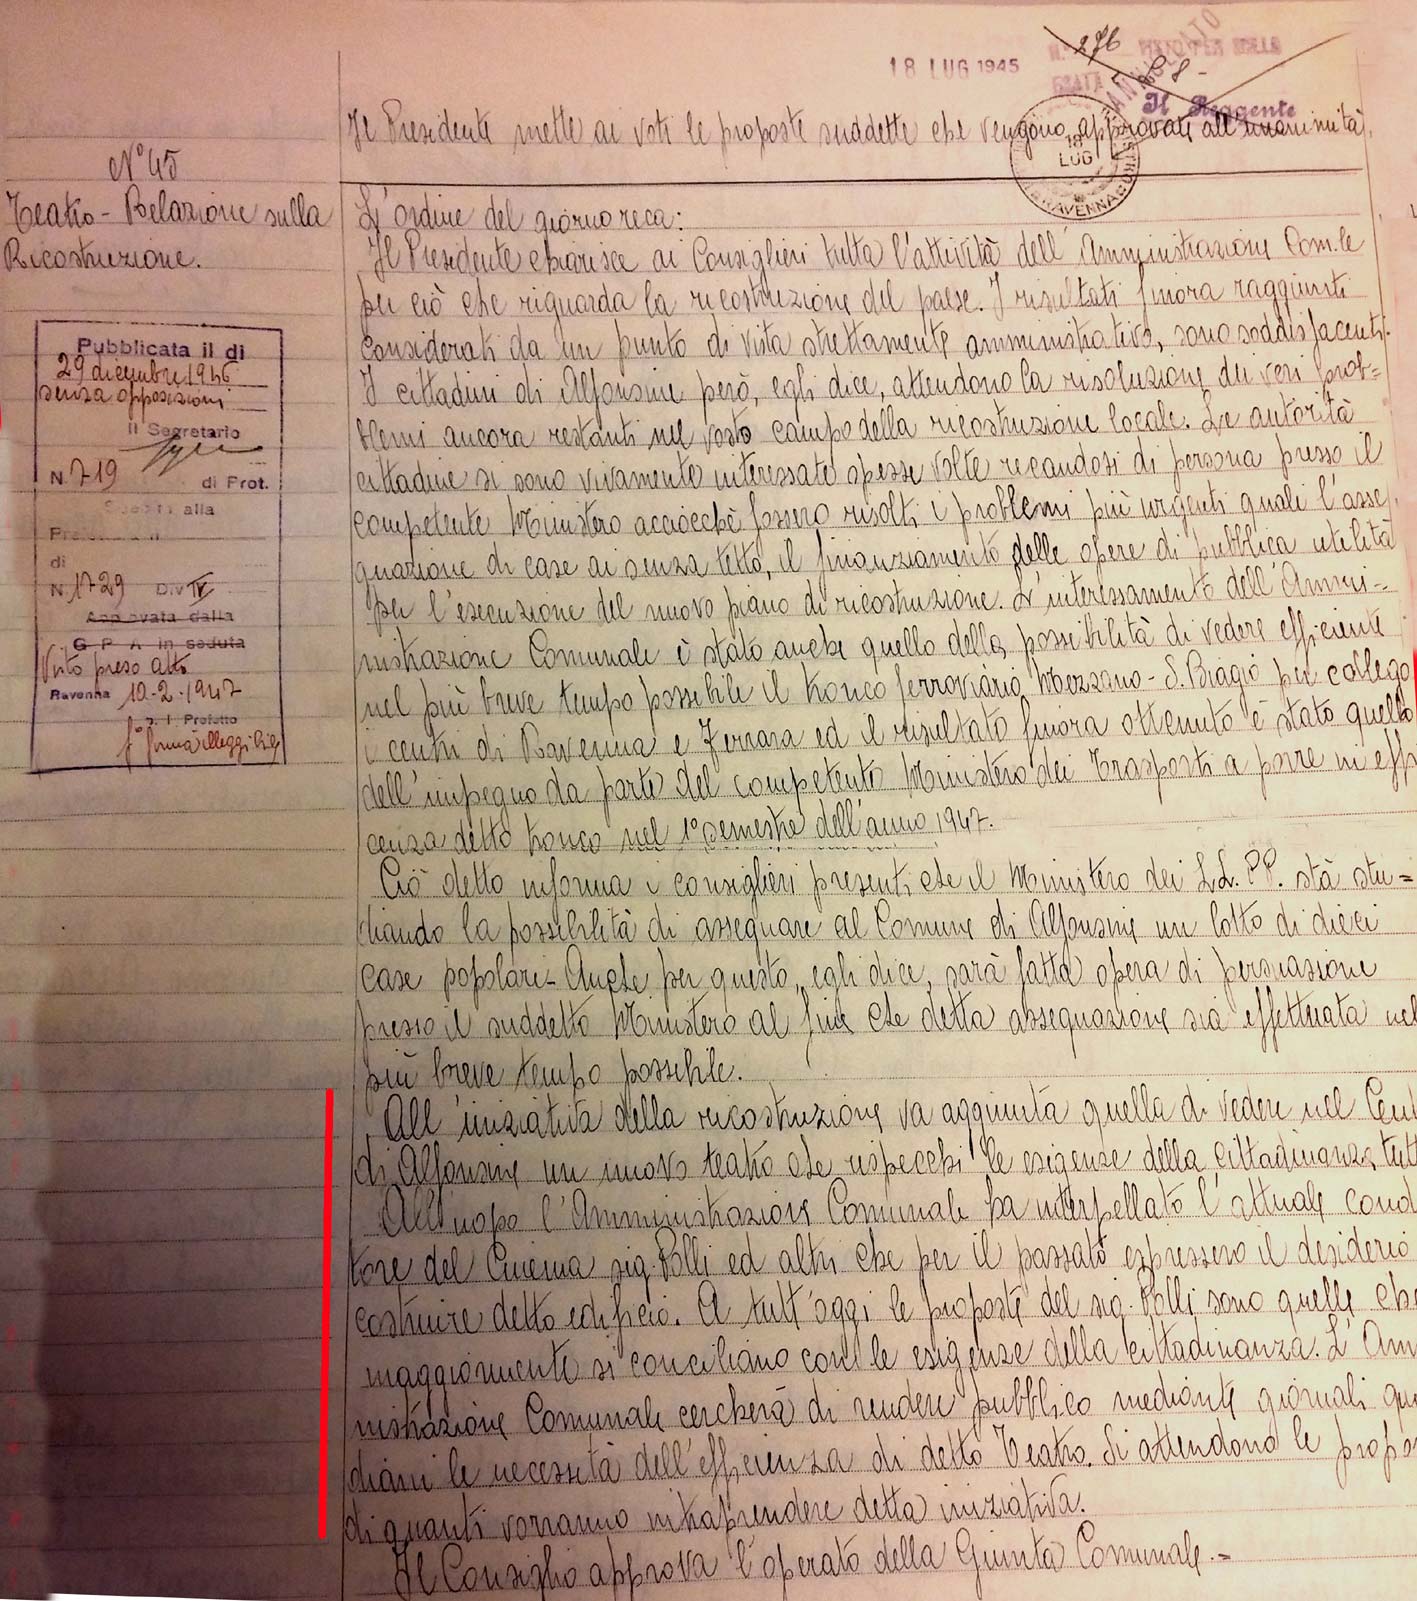 276
18 LUG 1945
ANNULLATO
Il Reggente
18
LUG
RAVENNA
Il Presidente mette ai voti le proposte suddette che vengono approvate all'unanimità.
N° 45
Teatro - Relazione sulla
Ricostruzione.
Pubblicata il di
29 dicembre 1946
senza opposizioni
Il Segretario
N. 719 di Prot.
alla
di
N. 1729 Div IV
Approvata dalla
G P A in seduta
Visto preso atto
Ravenna 10-2-1947
p. I. Prefetto
fº firma illeggibile
L'ordine del giorno reca:
Il Presidente chiarisce ai Consiglieri tutta l'attività dell'Amministrazione Com.le
per ciò che riguarda la ricostruzione del paese. I risultati finora raggiunti
considerati da un punto di vista strettamente amministrativo, sono soddisfacenti.
I cittadini di Alfonsine però, egli dice, attendono la risoluzione dei veri prob=
blemi ancora restanti nel vasto campo della ricostruzione locale. Le autorità
cittadine si sono vivamente interessate spesse volte recandosi di persona presso il
competente Ministero acciocchè fossero risolti i problemi più urgenti quali l'asse
gnazione di case ai senza tetto, il finanziamento delle opere di pubblica utilità
per l'esecuzione del nuovo piano di ricostruzione. L'interessamento dell'Ammi-
nistrazione Comunale è stato anche quello della possibilità di vedere efficiente
nel più breve tempo possibile il tronco ferroviario Mezzano - S. Biagio per collega
i centri di Ravenna e Ferrara ed il risultato finora ottenuto è stato quello
dell'impegno da parte del competente Ministero dei Trasporti a porre in effi
cenza detto tronco nel 1° semestre dell'anno 1947.
Ciò detto informa i consiglieri presenti che il Ministero dei LL. PP. stà stu=
diando la possibilità di assegnare al Comune di Alfonsine un lotto di dieci
case popolari - Anche per questo, egli dice, sarà fatta opera di persuasione
presso il suddetto Ministero al fine che detta assegnazione sia effettuata nel
più breve tempo possibile.
All'iniziativa della ricostruzione va aggiunta quella di vedere nel Cent
di Alfonsine un nuovo teatro che rispecchi le esigenze della cittadinanza tutt
All'uopo l'Amministrazione Comunale ha interpellato l'attuale condu
tore del Cinema sig. Polli ed altri che per il passato espressero il desiderio
costruire detto edificio. A tutt'oggi le proposte del sig. Polli sono quelle che
maggiormente si conciliano con le esigenze della cittadinanza. L'Am
nistrazione Comunale cercherà di rendere pubblico mediante giornali quo
diani le necessità dell'efficienza di detto Teatro. Si attendono le propo
di quanti vorranno intraprendere detta iniziativa.
Il Consiglio approva l'operato della Giunta Comunale.=